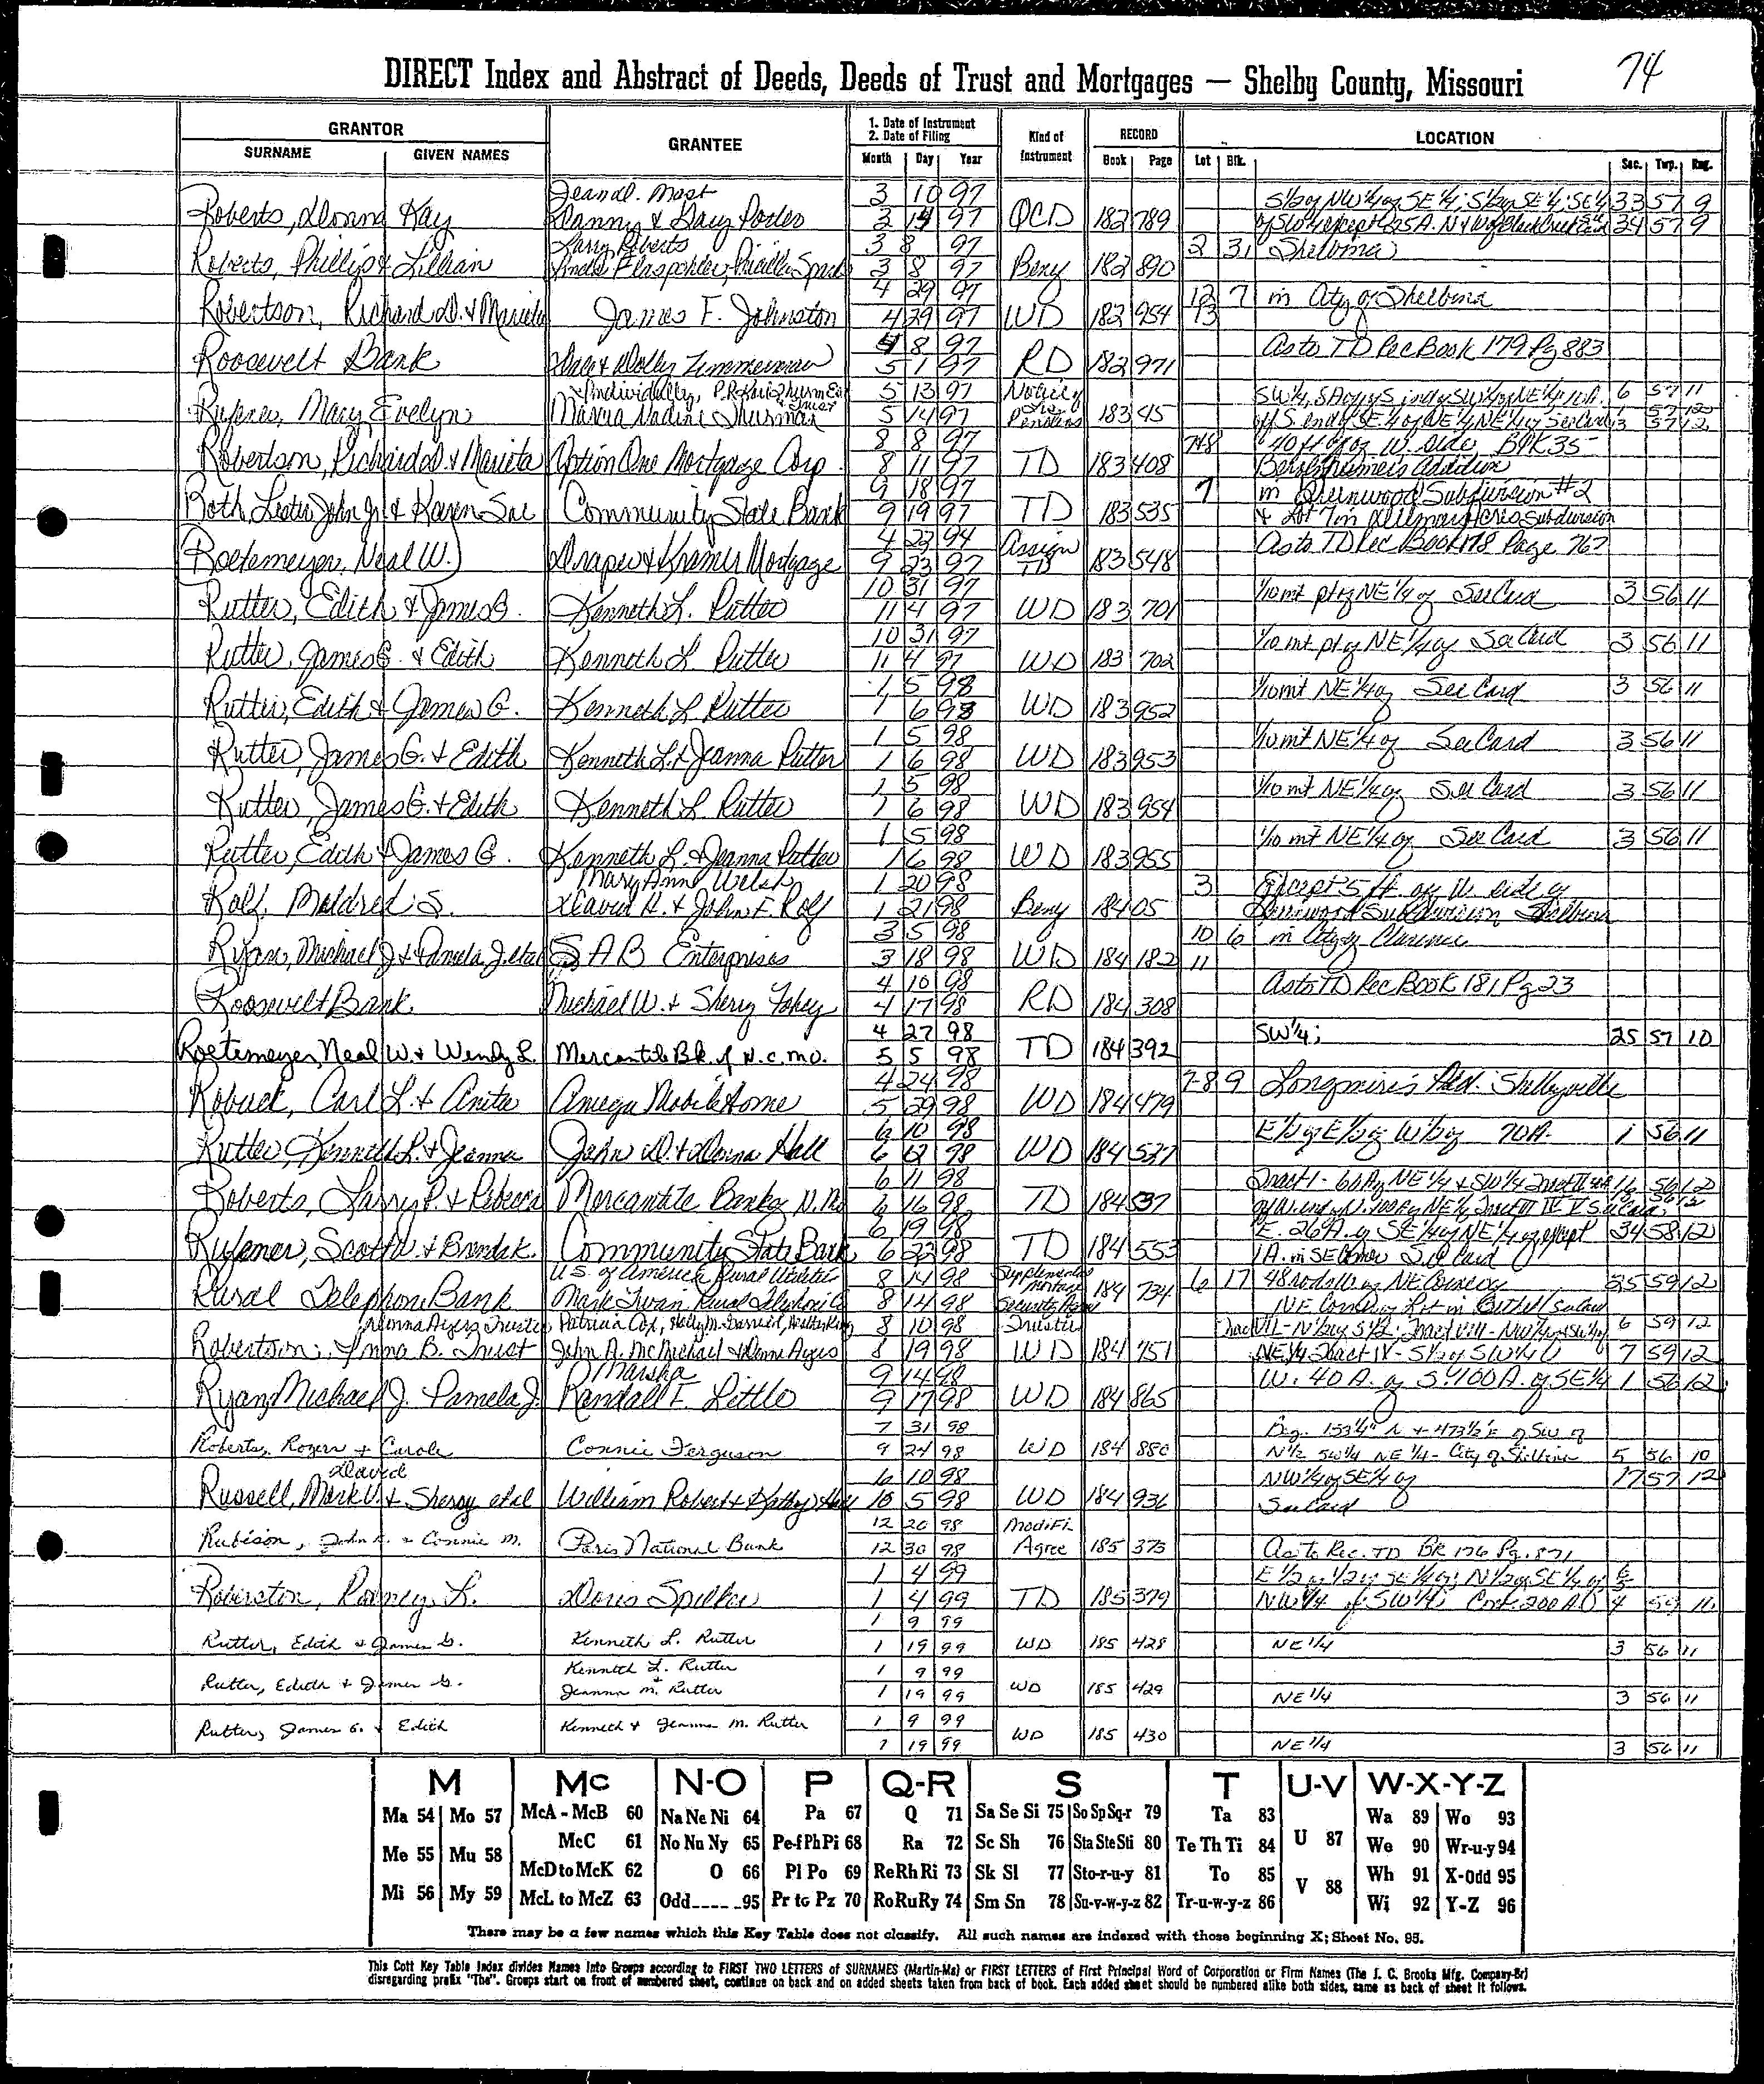 74
DIRECT Index and Abstract of Deeds, Deeds of Trust and Mortgages — Shelby County, Missouri
GRANTOR
SURNAME GIVEN NAMES
GRANTEE
1. Date of Instrument
2. Date of Filing
Month Day Year
Kind of Instrument
RECORD
Book Page
LOCATION
Lot Blk. Sec. Twp. Rng.
3 10 97
Roberts, Kay Danny & 97 QCD 182 789
Larry Roberts 3 8 97 2 31 Shelbina
Roberts, Phillip & Lillian 3 8 97 Beny 182 890
4 29 97 12 7 in City of Shelbina
Robertson, Richard D. & James F. Johnston 4 29 97 WD 182 954 13
4 8 97 As to TD Rec Book 179 Pg 883
Roosevelt Bank Zimmerman 5 1 97 RD 182 971
5 13 97 Notice of 6 57 11
Mary Evelyn Marcia Nadine Thurman 5 14 97 Lis Pendens 183 45
8 8 97 7&8 40 ft of W. side Blk 35
Robertson, Richard D. & Marieta Option One Mortgage Corp 8 11 97 TD 183 408 Addition
9 18 97 7 in Greenwood Subdivision #2
Roth, Lester John Jr & Karen Sue Community State Bank 9 19 97 TD 183 535 & Lot 7 in Acres Subdivision
4 22 94 Assign As to TD Rec Book 178 Page 767
Roetemeyer, Neal W. Draper & Kramer Mortgage 9 23 97 TD 183 548
10 31 97 1/10 int pt of NE 1/4 of See Card 3 56 11
Rutter, Edith & James G. Kenneth L. Rutter 11 4 97 WD 183 701
10 31 97 1/10 int pt of NE 1/4 of See Card 3 56 11
Rutter, James G. & Edith Kenneth L Rutter 11 4 97 WD 183 702
1 5 98 1/10 int NE 1/4 of See Card 3 56 11
Rutter, Edith & James G. Kenneth L Rutter 1 6 98 WD 183 952
1 5 98 1/10 int NE 1/4 of See Card 3 56 11
Rutter, James G. & Edith Kenneth L. & Jeanna Rutter 1 6 98 WD 183 953
1 5 98 1/10 int NE 1/4 of See Card 3 56 11
Rutter, James G. & Edith Kenneth L Rutter 1 6 98 WD 183 954
1 5 98 1/10 int NE 1/4 of See Card 3 56 11
Rutter, Edith & James G. Kenneth L. & Jeanna Rutter 1 6 98 WD 183 955
Mary Anne Welsh 1 20 98 3 Except 5 ft. off W. side of
Rolf, Mildred S. David H. & John F. Rolf 1 21 98 Beny 184 05 Subdivision Shelbina
3 5 98 10 6 in City of Clarence
Ryan, Michael J. & Pamela J. etal S A B Enterprises 3 18 98 WD 184 182 11
4 10 98 As to TD Rec Book 181 Pg 23
Roosevelt Bank Michael W. & Sherry 4 17 98 RD 184 308
4 27 98 SW 1/4; 25 57 10
Roetemeyer, Neal W. & Wendy L. Mercantile Bk. of N.C. MO. 5 5 98 TD 184 392
4 24 98 7-8 9 Longmire's Add. Shelbyville
Robuck, Carl L. & Anita Amega Mobile Home 5 29 98 WD 184 479
6 10 98 E 1/2 of E 1/2 of W 1/2 of 70 A. 1 56 11
Rutter, Kenneth L. & Jeanna John D. & Donna Hall 6 12 98 WD 184 527
6 11 98
Roberts, Larry P. & Rebecca Mercantile Bank of N. Mo 6 16 98 TD 184 537
6 19 98 E. 26 A. of SE 1/4 of NE 1/4 of except 34 58 12
Scott & Community State Bank 6 22 98 TD 184 553 1 A. in SE Corner See Card
U.S. of America Rural Utilities 8 14 98 Supplemental Mortgage 6 17 48 rods W. of NE Corner of 35 59 12
Rural Telephone Bank Mark Twain Rural Telephone Co 8 14 98 Security 184 734 NE Corner of Lot in Bethel See Card
8 10 98 Trustee 6 59 12
Robertson, B. Trust John A. McMichael 8 19 98 WD 184 751 7 59 12
Marsha 9 14 98 W. 40 A. of S. 100 A. of SE 1/4 1 56 12
Ryan, Michael J. Pamela J. Randall E. Little 9 17 98 WD 184 865
7 31 98 Beg. 153 1/4' N & 473 1/2' E of SW of
Roberts, Roger & Carole Connie Ferguson 9 24 98 WD 184 880 N 1/2 SW 1/4 NE 1/4 - City of Shelbina 5 56 10
David 6 10 98 NW 1/4 of SE 1/4 of 17 57 12
Russell, Mark & etal William Robert & Kathy 10 5 98 WD 184 936 See Card
12 20 98 Modifi
Rubison, John & Connie M. Paris National Bank 12 30 98 Agree 185 373 As to Rec. TD BK 176 Pg. 871
1 4 99
Roberston, Rodney L. Doris Spilker 1 4 99 TD 185 379 4 59 11
1 9 99
Rutter, Edith & James G. Kenneth L. Rutter 1 19 99 WD 185 428 NE 1/4 3 56 11
Kenneth L. Rutter 1 9 99
Rutter, Edith & James G. & Jeanna M. Rutter 1 19 99 WD 185 429 NE 1/4 3 56 11
1 9 99
Rutter, James G. & Edith Kenneth & Jeanna M. Rutter 1 19 99 WD 185 430 NE 1/4 3 56 11
M Mc N-O P Q-R S T U-V W-X-Y-Z
Ma 54 Mo 57 McA - McB 60 Na Ne Ni 64 Pa 67 Q 71 Sa Se Si 75 So Sp Sq-r 79 Ta 83 Wa 89 Wo 93
Me 55 Mu 58 McC 61 No Nu Ny 65 Pe-f Ph Pi 68 Ra 72 Sc Sh 76 Sta Ste Sti 80 Te Th Ti 84 U 87 We 90 Wr-u-y 94
McD to McK 62 O 66 Pl Po 69 Re Rh Ri 73 Sk Sl 77 Sto-r-u-y 81 To 85 V 88 Wh 91 X-Odd 95
Mi 56 My 59 McL to McZ 63 Odd 95 Pr to Pz 70 Ro Ru Ry 74 Sm Sn 78 Su-v-w-y-z 82 Tr-u-w-y-z 86 Wi 92 Y-Z 96
There may be a few names which this Key Table does not classify. All such names are indexed with those beginning X; Sheet No. 95.
This Cott Key Table Index divides Names Into Groups according to FIRST TWO LETTERS of SURNAMES (Martin-Ma) or FIRST LETTERS of First Principal Word of Corporation or Firm Names (The J. C. Brooks Mfg. Company-Br)
disregarding prefix "The". Groups start on front of numbered sheet, continue on back and on added sheets taken from back of book. Each added sheet should be numbered alike both sides, same as back of sheet it follows.